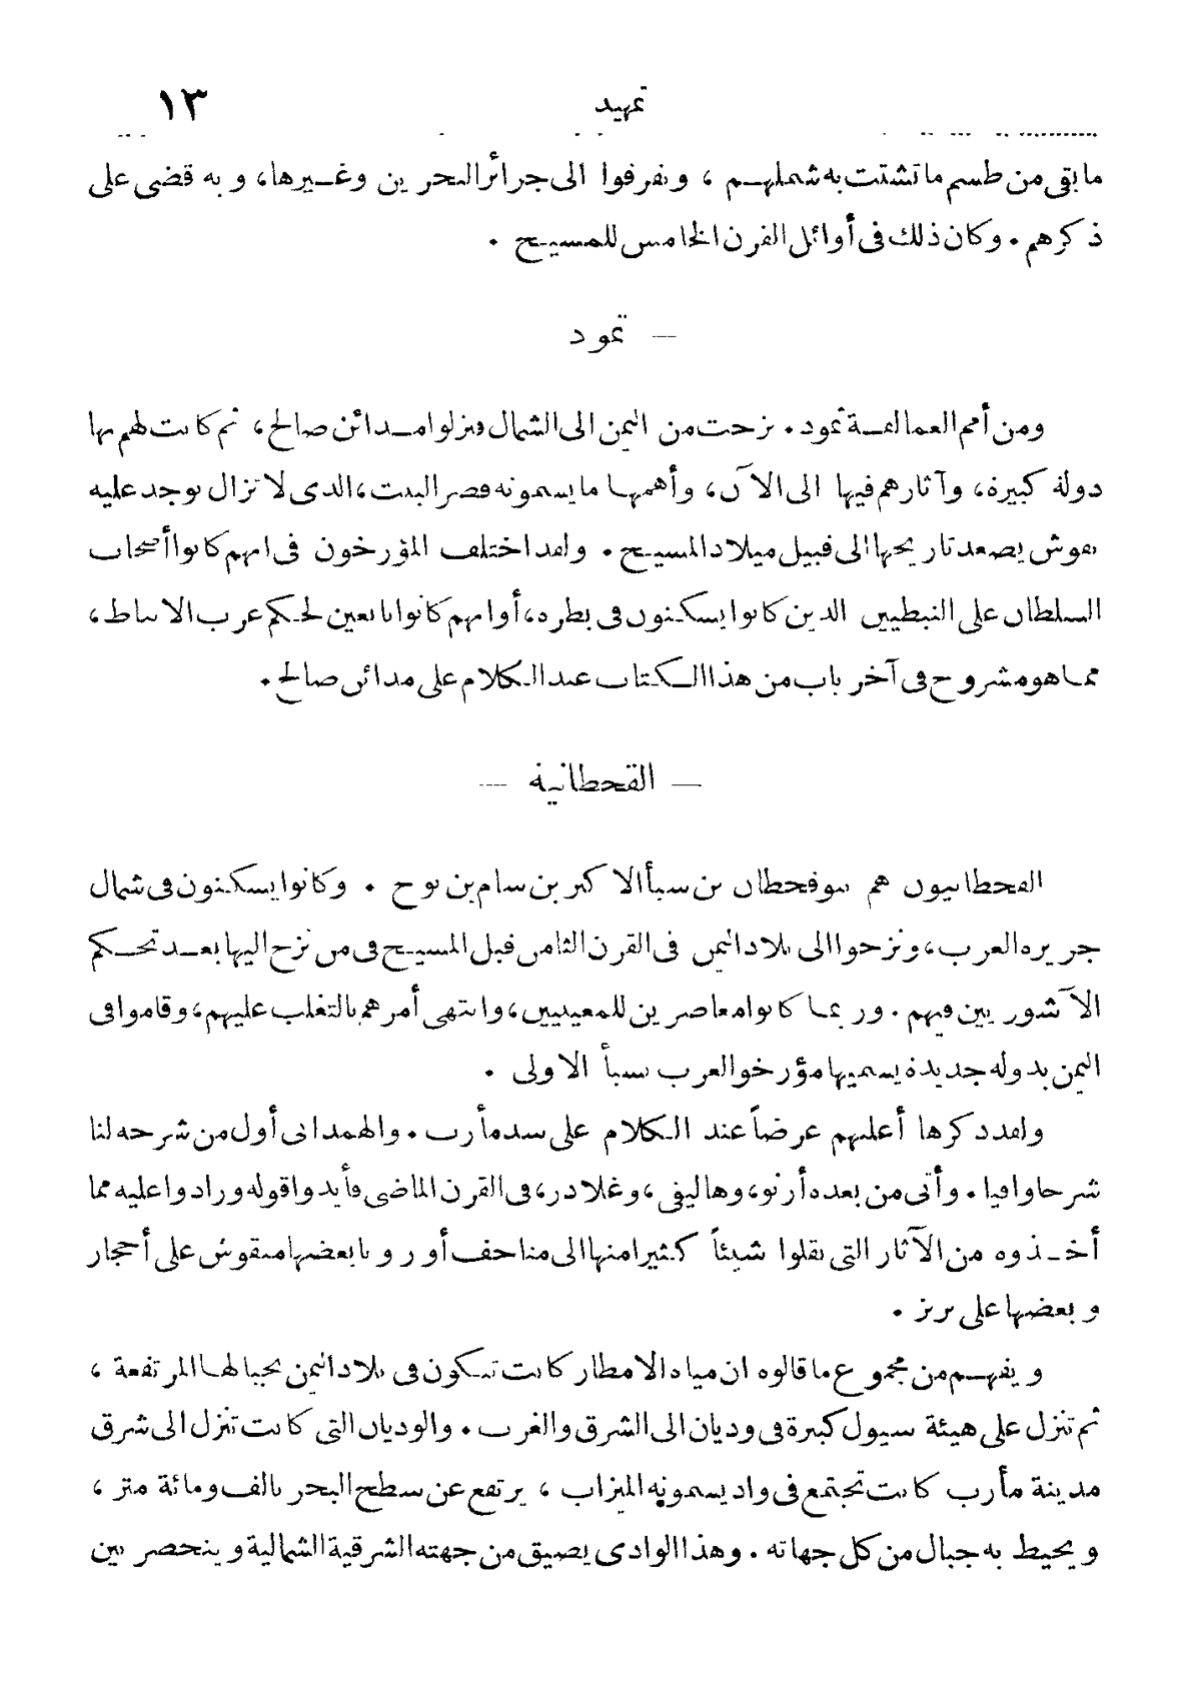 تمهيد ١٣
ما بقى من طسم ما تشتت به شملهم ، وتفرقوا الى جزائر البحرين وغيرها، وبه قضى على
ذكرهم . وكان ذلك فى أوائل القرن الخامس للمسيح .
— ثمود
ومن أمم العمالقة ثمود . نزحت من اليمن الى الشمال فنزلوا مدائن صالح ، ثم كانت لهم بها
دولة كبيرة، وآثارهم فيها الى الآن، وأهمها ما يسمونه قصر البنت، الذى لا تزال توجد عليه
نقوش يصعد تاريخها الى قبيل ميلاد المسيح . ولقد اختلف المؤرخون فى انهم كانوا أصحاب
السلطان على النبطيين الذين كانوا يسكنون فى بطره، أو انهم كانوا تابعين لحكم عرب الانباط ،
مما هو مشروح فى آخر باب من هذا الكتاب عند الكلام على مدائن صالح .
— القحطانية —
القحطانيون هم بنو قحطان بن سبأ الاكبر بن سام بن نوح . وكانوا يسكنون فى شمال
جزيرة العرب، ونزحوا الى بلاد اليمن فى القرن الثامن قبل المسيح فى من نزح اليها بعد تحكم
الآشوريين فيهم . وربما كانوا معاصرين للمعينيين، وانتهى أمرهم بالتغلب عليهم، وقاموا فى
اليمن بدولة جديدة يسميها مؤرخو العرب سبأ الاولى .
ولقد ذكرها أغلبهم عرضاً عند الكلام على سد مأرب . والهمدانى أول من شرحه لنا
شرحا وافيا . وأتى من بعده أرنو، وهاليفى، وغلادر، فى القرن الماضى فأيدوا قوله وزادوا عليه مما
أخذوه من الآثار التى نقلوا شيئاً كثيرا منها الى متاحف أوروبا بعضها منقوش على أحجار
وبعضها على برنز .
ويفهم من مجموع ما قالوه ان مياه الامطار كانت تتكون فى بلاد اليمن بجبالها المرتفعة ،
ثم تنزل على هيئة سيول كبيرة فى وديان الى الشرق والغرب . والوديان التى كانت تنزل الى شرق
مدينة مأرب كانت تجتمع فى واد يسمونه الميزاب ، يرتفع عن سطح البحر بالف ومائة متر ،
ويحيط به جبال من كل جهاته . وهذا الوادى يضيق من جهته الشرقية الشمالية وينحصر بين